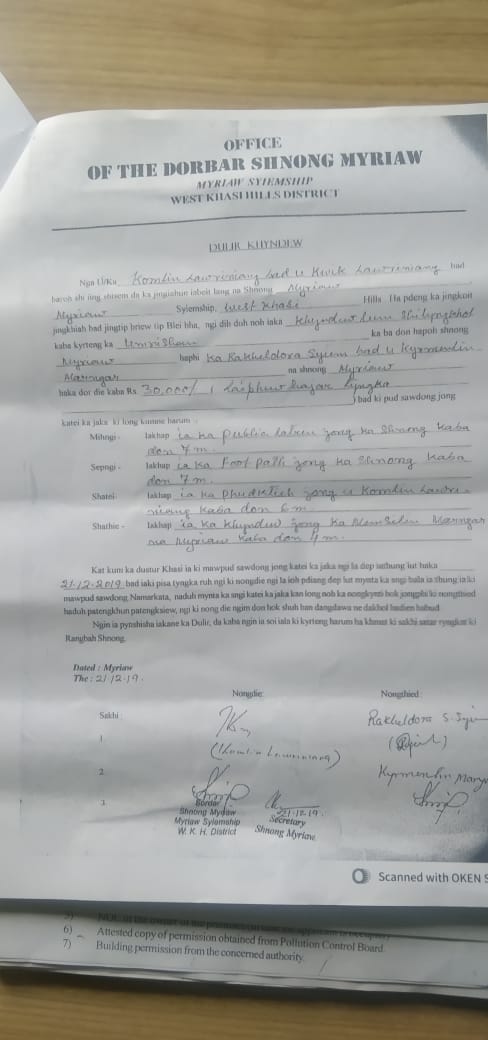 OFFICE
OF THE DORBAR SHNONG MYRIAW
MYRIAW SYIEMSHIP
WEST KHASI HILLS DISTRICT
DULIR KHYNDEW
Nga U/Ka Komlin Lawriniang bad u Kwik Lawriniang bad
baroh shi iing shisem da ka jingiahun iabeit lang na Shnong Myriaw
Myriaw Syiemship, West Khasi Hills Ha pdeng ka jingkoit
jingkhiah bad jingtip briew tip Blei bha, ngi dih duh noh iaka Khyndew Lum
kaba kyrteng ka Umrishan ka ba don hapoh shnong
Myriaw haphi Ka Rakheldora Syiem bad u Kyrmenlin
Marngar na shnong Myriaw
haka dor die kaba Rs 30,000/ ( Laiphew hajar tyngka
) bad ki pud sawdong jong
katei ka jaka ki long kumne harum
Mihngi - Iakhap ia ka public jong ka Shnong kaba
don 7 m.
Sepngi - Iakhap ia ka Foot path jong ka Shnong kaba
don 7m.
Shatei Iakhap ia ka jong u Komlin Lawri-
niang kaba don 6 m
Shathie - Iakhap ia ka Khyndew jong Ka Marngar
na Myriaw kaba don 4 m.
Kat kum ka dustur Khasi ia ki mawpud sawdong jong katei ka jaka ngi la dep iathung lut haka
21-12-2019 bad iaki pisa tyngka ruh ngi ki nongdie ngi la ioh pdiang dep lut mynta ka sngi bala ia thung ia ki
mawpud sawdong. Namarkata, naduh mynta ka sngi katei ka jaka kan long noh ka nongkynti bok jongphi ki nongthied
haduh patengkhun patengksiew, ngi ki nong die ngim don hok shuh ban dangdawa ne dakhol hadien habud
Ngin ia pynshisha iakane ka Dulir, da kaba ngin ia soi iala ki kyrteng harum ha khmat ki sakhi ki
Rangbah Shnong.
Dated : Myriaw
The : 21/12/19.
Nongdie: Nongthied
Sakhi Rakheldora S. Syi
1 (Komlin Lawriniang)
2 Kyrmenlin Marng
3
Sordar 21.12.19
Shnong Myriaw Secretary
Myriaw Syiemship Shnong Myriaw
W. K. H. District
Scanned with OKEN S
6) Attested copy of permission obtained from Pollution Control Board.
7) Building permission from the concerned authority.